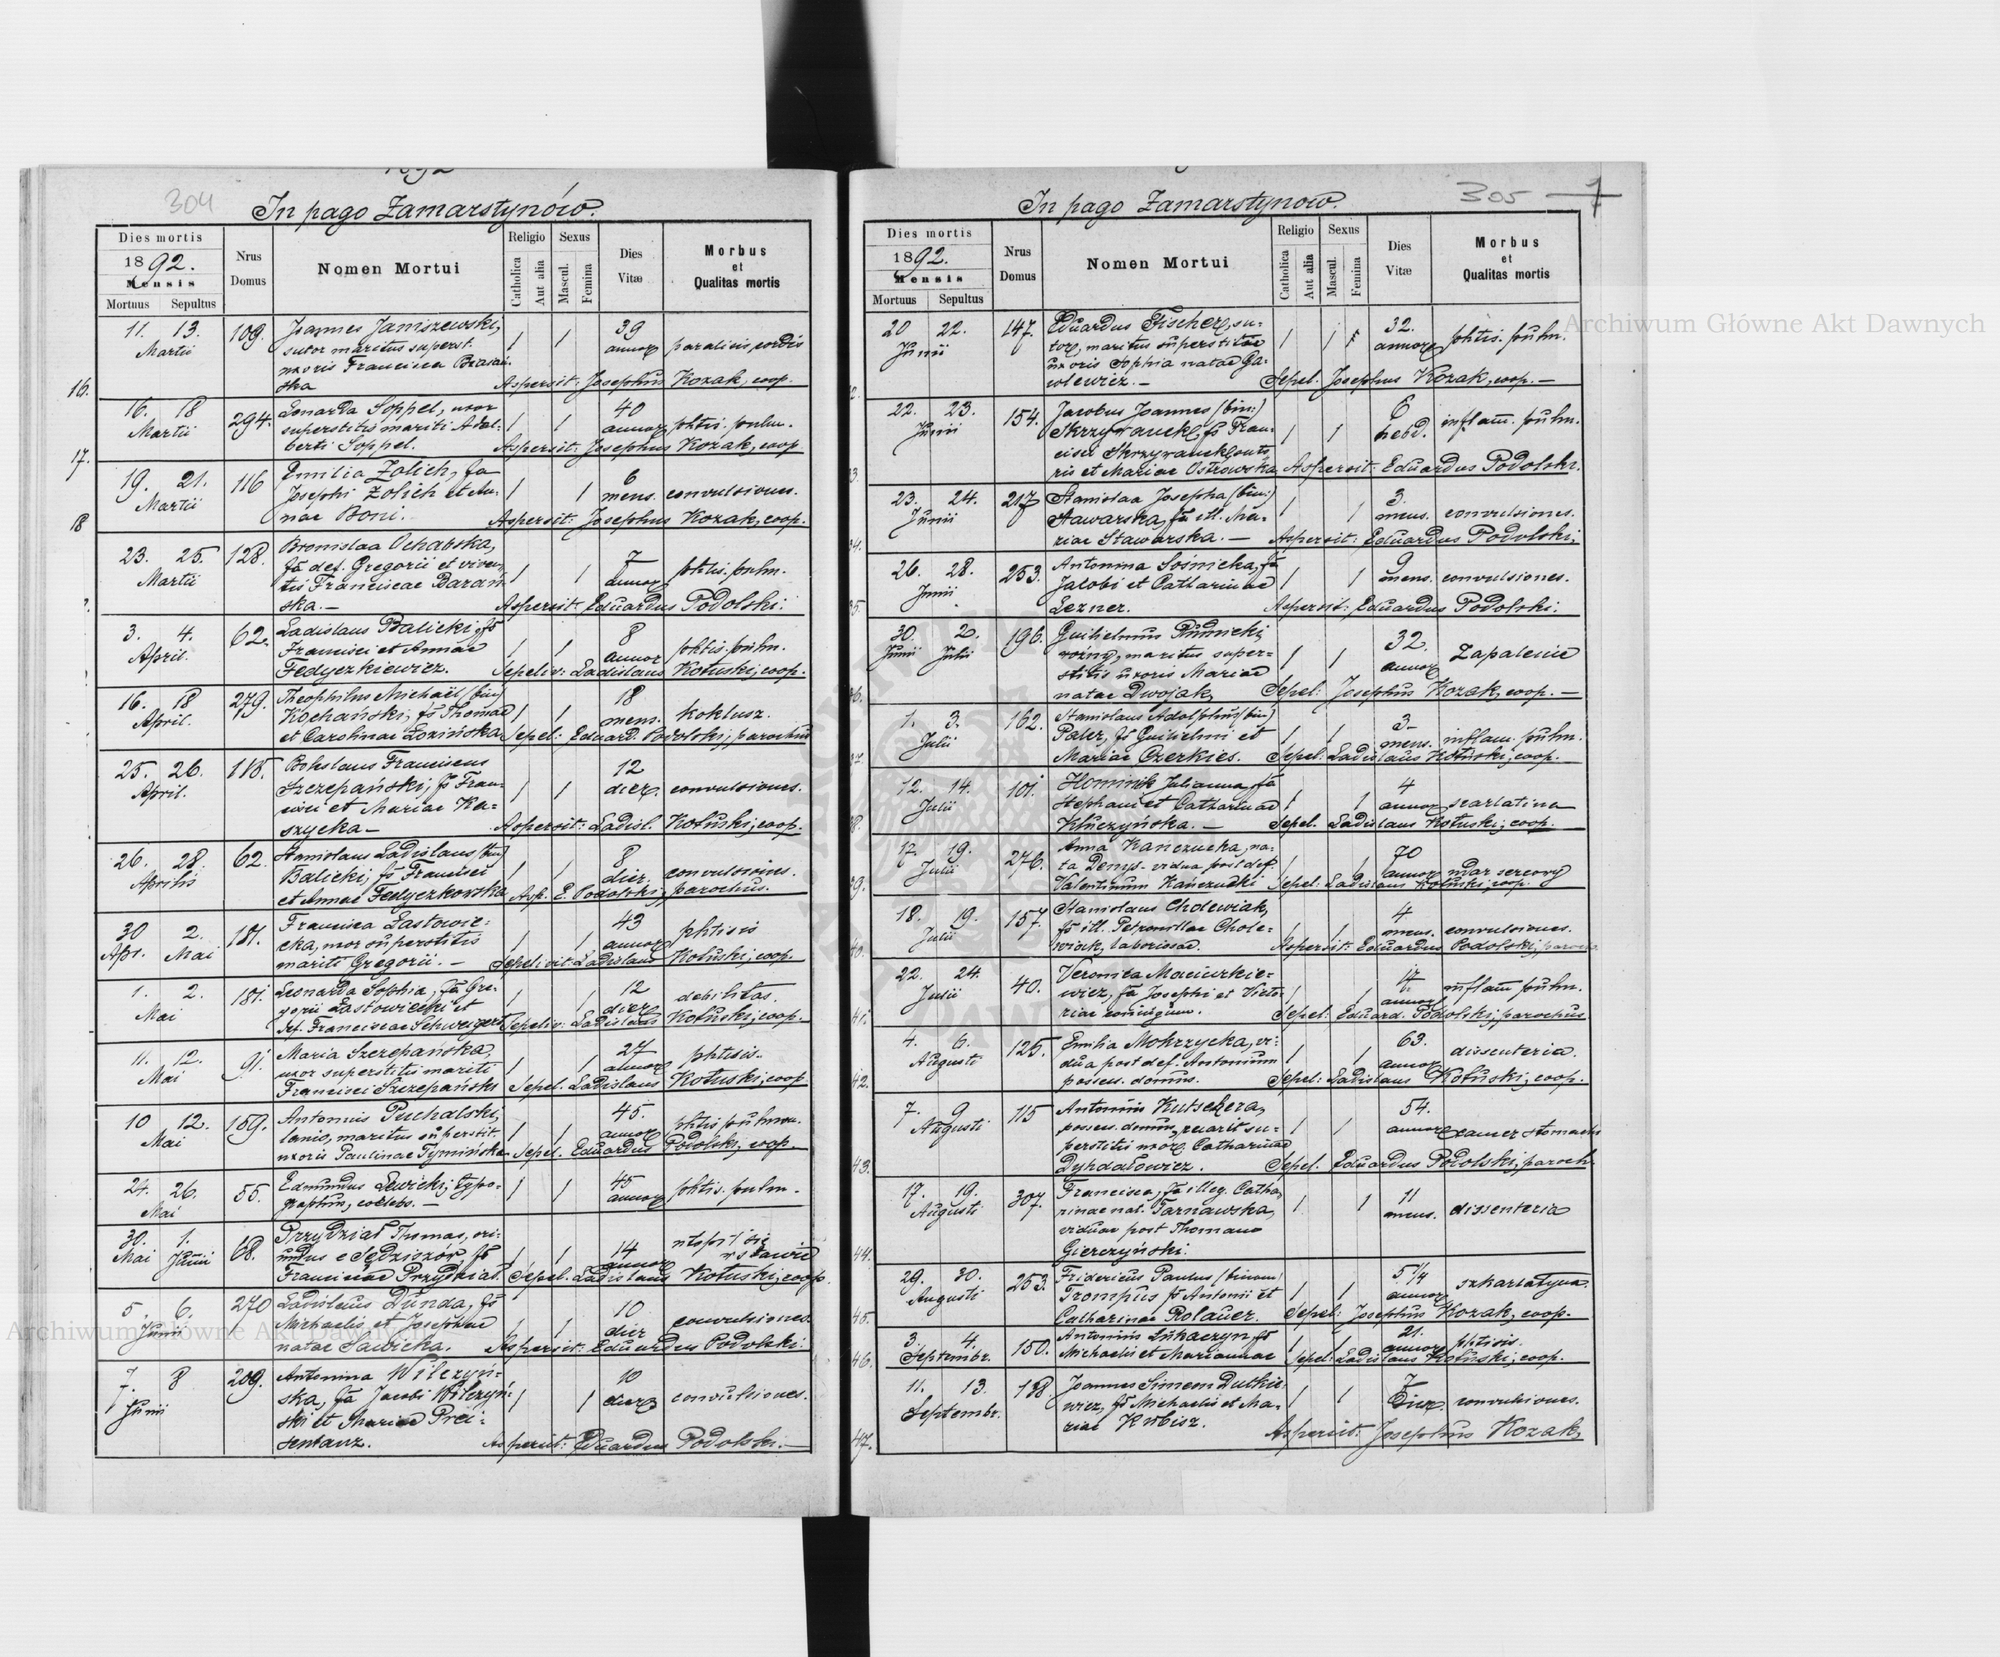 1892
304
In pago Zamarstynów.
Dies mortis
1892.
Mensis
Mortuus Sepultus
Nrus Domus
Nomen Mortui
Religio
Catholica
Aut alia
Sexus
Mascul.
Femina
Dies Vitæ
Morbus et Qualitas mortis
11. 13. 109. Joannes Janiszewski, 39
Martii sutor maritus superst. annor paralisis cordis
uxoris Francisca
16. ska Aspersit: Josephus Kozak, coop.
16. 18 294. Leonarda Soppel, uxor 40
Martii superstitis mariti Adal- annor phtis. pulm.
17. berti Soppel. Aspersit: Josephus Kozak, coop
19. 21. 116 Emilia Zolich, fa 6
Martii Josephi Zolich et An- mens. convulsiones.
18 nae Boni. Aspersit: Josephus Kozak, coop.
23. 25. 128. Bronislaa Ochabska, 7
Martii fa def. Gregorii et viven- annor phtis. pulm.
tis Franciscae Barań
ska.— Aspersit: Eduardus Podolski.
3. 4. 62. Ladislaus Balicki, fs 8
April. Francisci et Annae annor phtis. pulm.
Fedyczkiewicz. Sepeliv: Ladislaus Kotuski, coop.
16. 18 279. Theophilus Michael (bin) 18
April. Kochański, fs Thomae mens. koklusz.
et Carolinae Łozińska Sepel: Eduard. Podolski, parochus
25. 26. 118. Boleslaus Franciscus 12
April. Szczepański, fs Fran- dier. convulsiones.
cisci et Mariae Ka-
szycka— Aspersit: Ladisl. Kotuski, coop.
26. 28. 62. Stanislaus Ladislaus (bin) 8
Aprilis Balicki, fs Francisci dier. convulsiones.
et Annae Fedyczkowska Asp. E. Podolski, parochus.
30 2. 181. Francisca Lastowie- 43
Apr. Mai cka, uxor superstitis annor phtisis
mariti Gregorii.— Sepelivit: Ladislaus Kotuski, coop.
1. 2. 181. Leonarda Sophia, fa Gre- 12
Mai gorii Lastowiecki et dier debilitas.
def. Franciscae Schweigert Sepeliv: Ladislaus Kotuski, coop.
11. 12. 91. Maria Szczepańska, 27
Mai uxor superstitis mariti annor phtisis.
Francisci Szczepański Sepel. Ladislaus Kotuski, coop
10 12. 159. Antonius Puchalski, 45.
Mai lanio, maritus superstit. annor phtis pulmon.
uxoris Paulinae Tymińska Sepel. Eduardus Podolski, coop.
24. 26. 55. Edmundus Lewicki, typo- 45
Mai graphus, coelebs.— annor phtis. pulm.
30. 1. 68. Przydział Thomas, ori- utopił się
Mai Junii undus e Sędziszów fs 14 w stawie
Franciscae Przydział. annor Sepel. Ladislaus Kotuski, coop.
5. 6. 270 Ladislaus Dunda, fs 10
Junii Michaelis et Josephae dier convulsiones.
natae Sawicka. Aspersit: Eduardus Podolski.
7. 8 209. Antonina Wilczyń- 10
Junii ska, fa Jacobi Wilczyń- dier convulsiones.
ski et Mariae
Aspersit: Eduardus Podolski.—
305 — 1
In pago Zamarstynow.
Dies mortis
1892.
Mensis
Mortuus Sepultus
Nrus Domus
Nomen Mortui
Religio
Catholica
Aut alia
Sexus
Mascul.
Femina
Dies Vitæ
Morbus et Qualitas mortis
20 22. 147. Eduardus Fischer, su- 32.
Junii tor, maritus superstitae annor phtis. pulm.
uxoris Sophia natae Ga-
wlewicz.— Sepel. Josephus Kozak, coop.—
22. 23. 154. Jacobus Joannes (bin:) 6
Junii fs Fran- hebd. inflam. pulm.
cisci
33. ris et Mariae Ostrowska Aspersit: Eduardus Podolski.
23. 24. 217 Stanislaa Josepha (bin:) 3.
Junii Stawarska, fa ill. Ma- mens. convulsiones.
34. riae Stawarska.— Aspersit: Eduardus Podolski.
26. 28. 253. Antonina Sośnicka, fa 9
Junii Jacobi et Catharinae mens. convulsiones.
35. Lezner. Aspersit: Eduardus Podolski.
30. 2. 196. Guilielmus Rudnicki, 32
Junii Julii woźny, maritus super- annor Zapalenie
stitis uxoris Mariae
36. natae Dwojak, Sepel: Josephus Kozak, coop.—
1. 3. 162. Stanislaus Adolphus (bin) 3
Julii Paler, fs Guilielmi et mens. inflam. pulm.
37. Mariae Czerkies. Sepel: Ladislaus Kotuski, coop.
12. 14. 101. Hominik Julianna, fa 4
Julii Stephani et Catharinae annor scarlatina
38. Kluczyńska.— Sepel. Ladislaus Kotuski, coop.
17. 19. 276. Anna Kańczucka, na- 70
Julii ta Denys- vidua post def. annor udar sercowy
39. Valentinum Kańczucki Sepel: Ladislaus Kotuski, coop.
18. 19. 157. Stanislaus Cholewiak, 4
Julii fs ill. Petronellae Chole- mens. convulsiones.
40. wiak, laborissae. Aspersit: Eduardus Podolski, paroch.
22. 24. 40. Veronica Maciuszkie-
Julii wicz, fa Josephi et Victo- annor inflam pulm.
41. riae coniugum. Sepel: Eduard. Podolski, parochus
4. 6. 125. Emilia Mokrzycka, vi- 63.
Augusti dua post def. Antonium annor dissenteria.
42. possess. domus. Sepel: Ladislaus Kotuski, coop.
7. 9 115 Antonius Kutschera, 54.
Augusti possess. domus, marit su- annor cancer stomachi
perstitis uxor Catharinae
43. Dyhdałowicz. Sepel. Eduardus Podolski, paroch
17. 19. 307. Francisca, fa illeg. Catha- 11
Augusti rinae nat. Tarnawska, mens. dissenteria
viduae post Thomam
44. Gierczyński.
29. 30. 253. Fridericus Paulus (binom) 5 1/4
Augusti Trompus fs Antonii et annor szkarlatyna
45. Catharinae Rolauer. Sepel: Josephus Kozak, coop.
3. 4. 150. Antonius Lukaczyn, fs 21.
46. Septembr. Michaelis et Mariannae annor phtisis. Sepel: Ladislaus Kotuski, coop.
11. 13. 138. Joannes Simeon Dutkie- 7
Septembr. wicz, fs Michaelis et Ma- dier. convulsiones.
riae Kubisz.
47. Aspersit: Josephus Kozak,
Archiwum Główne Akt Dawnych
Archiwum Główne Akt Dawnych